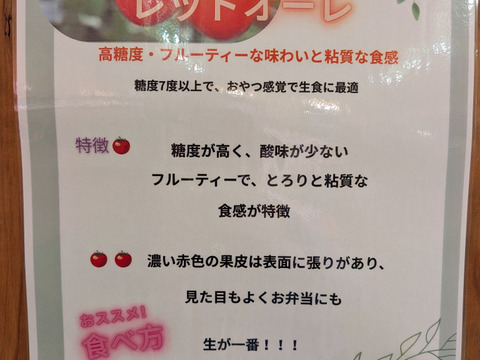 レッドオーレ
高糖度・フルーティーな味わいと粘質な食感
糖度7度以上で、おやつ感覚で生食に最適
特徴
糖度が高く、酸味が少ない
フルーティーで、とろりと粘質な
食感が特徴
濃い赤色の果皮は表面に張りがあり、
見た目もよくお弁当にも
おススメ!
食べ方
生が一番!!!